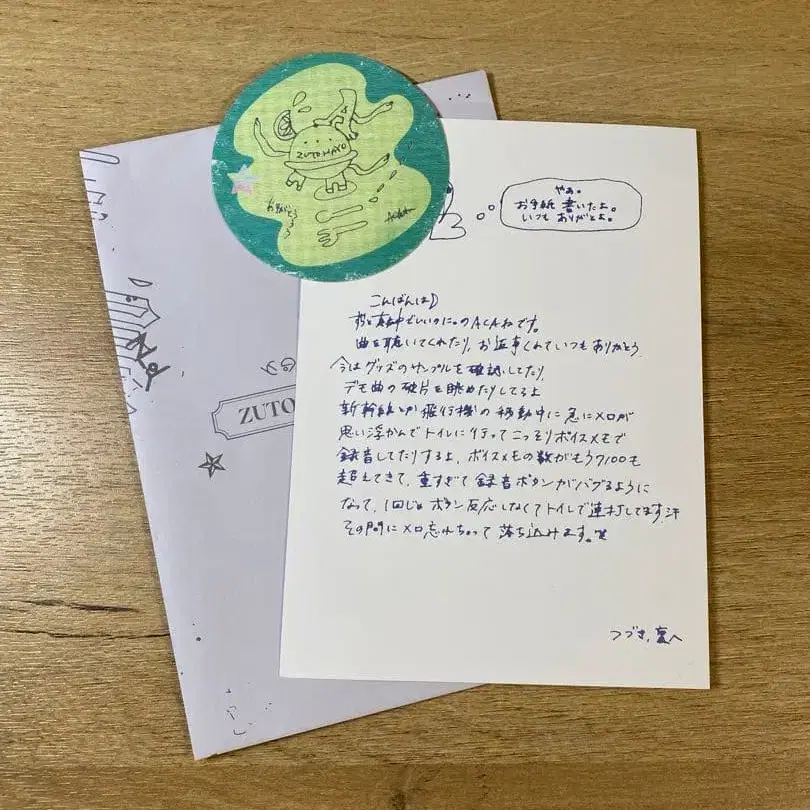 ZUTOMAYO
ありがとう
ACAね
ZUTO
やぁ。
お手紙 書いたよ。
いつも ありがとよ。
こんばんは
ずっと真夜中でいいのに。のACAねです。
曲を聴いてくれたり、お返事くれていつもありがとう
今はグッズのサンプルを確認してたり、
デモ曲の破片を眺めたりしてるよ
新幹線とか飛行機の移動中に急にメロが
思い浮かんでトイレに行ってこっそりボイスメモで
録音してたりするよ、ボイスメモの数がもう7100も
超えてきて、重すぎて録音ボタンがバグるように
なって、1回じゃボタン反応しなくてトイレで連打してます汗
その間にメロ忘れちゃって落ち込みます。
つづき、裏へ